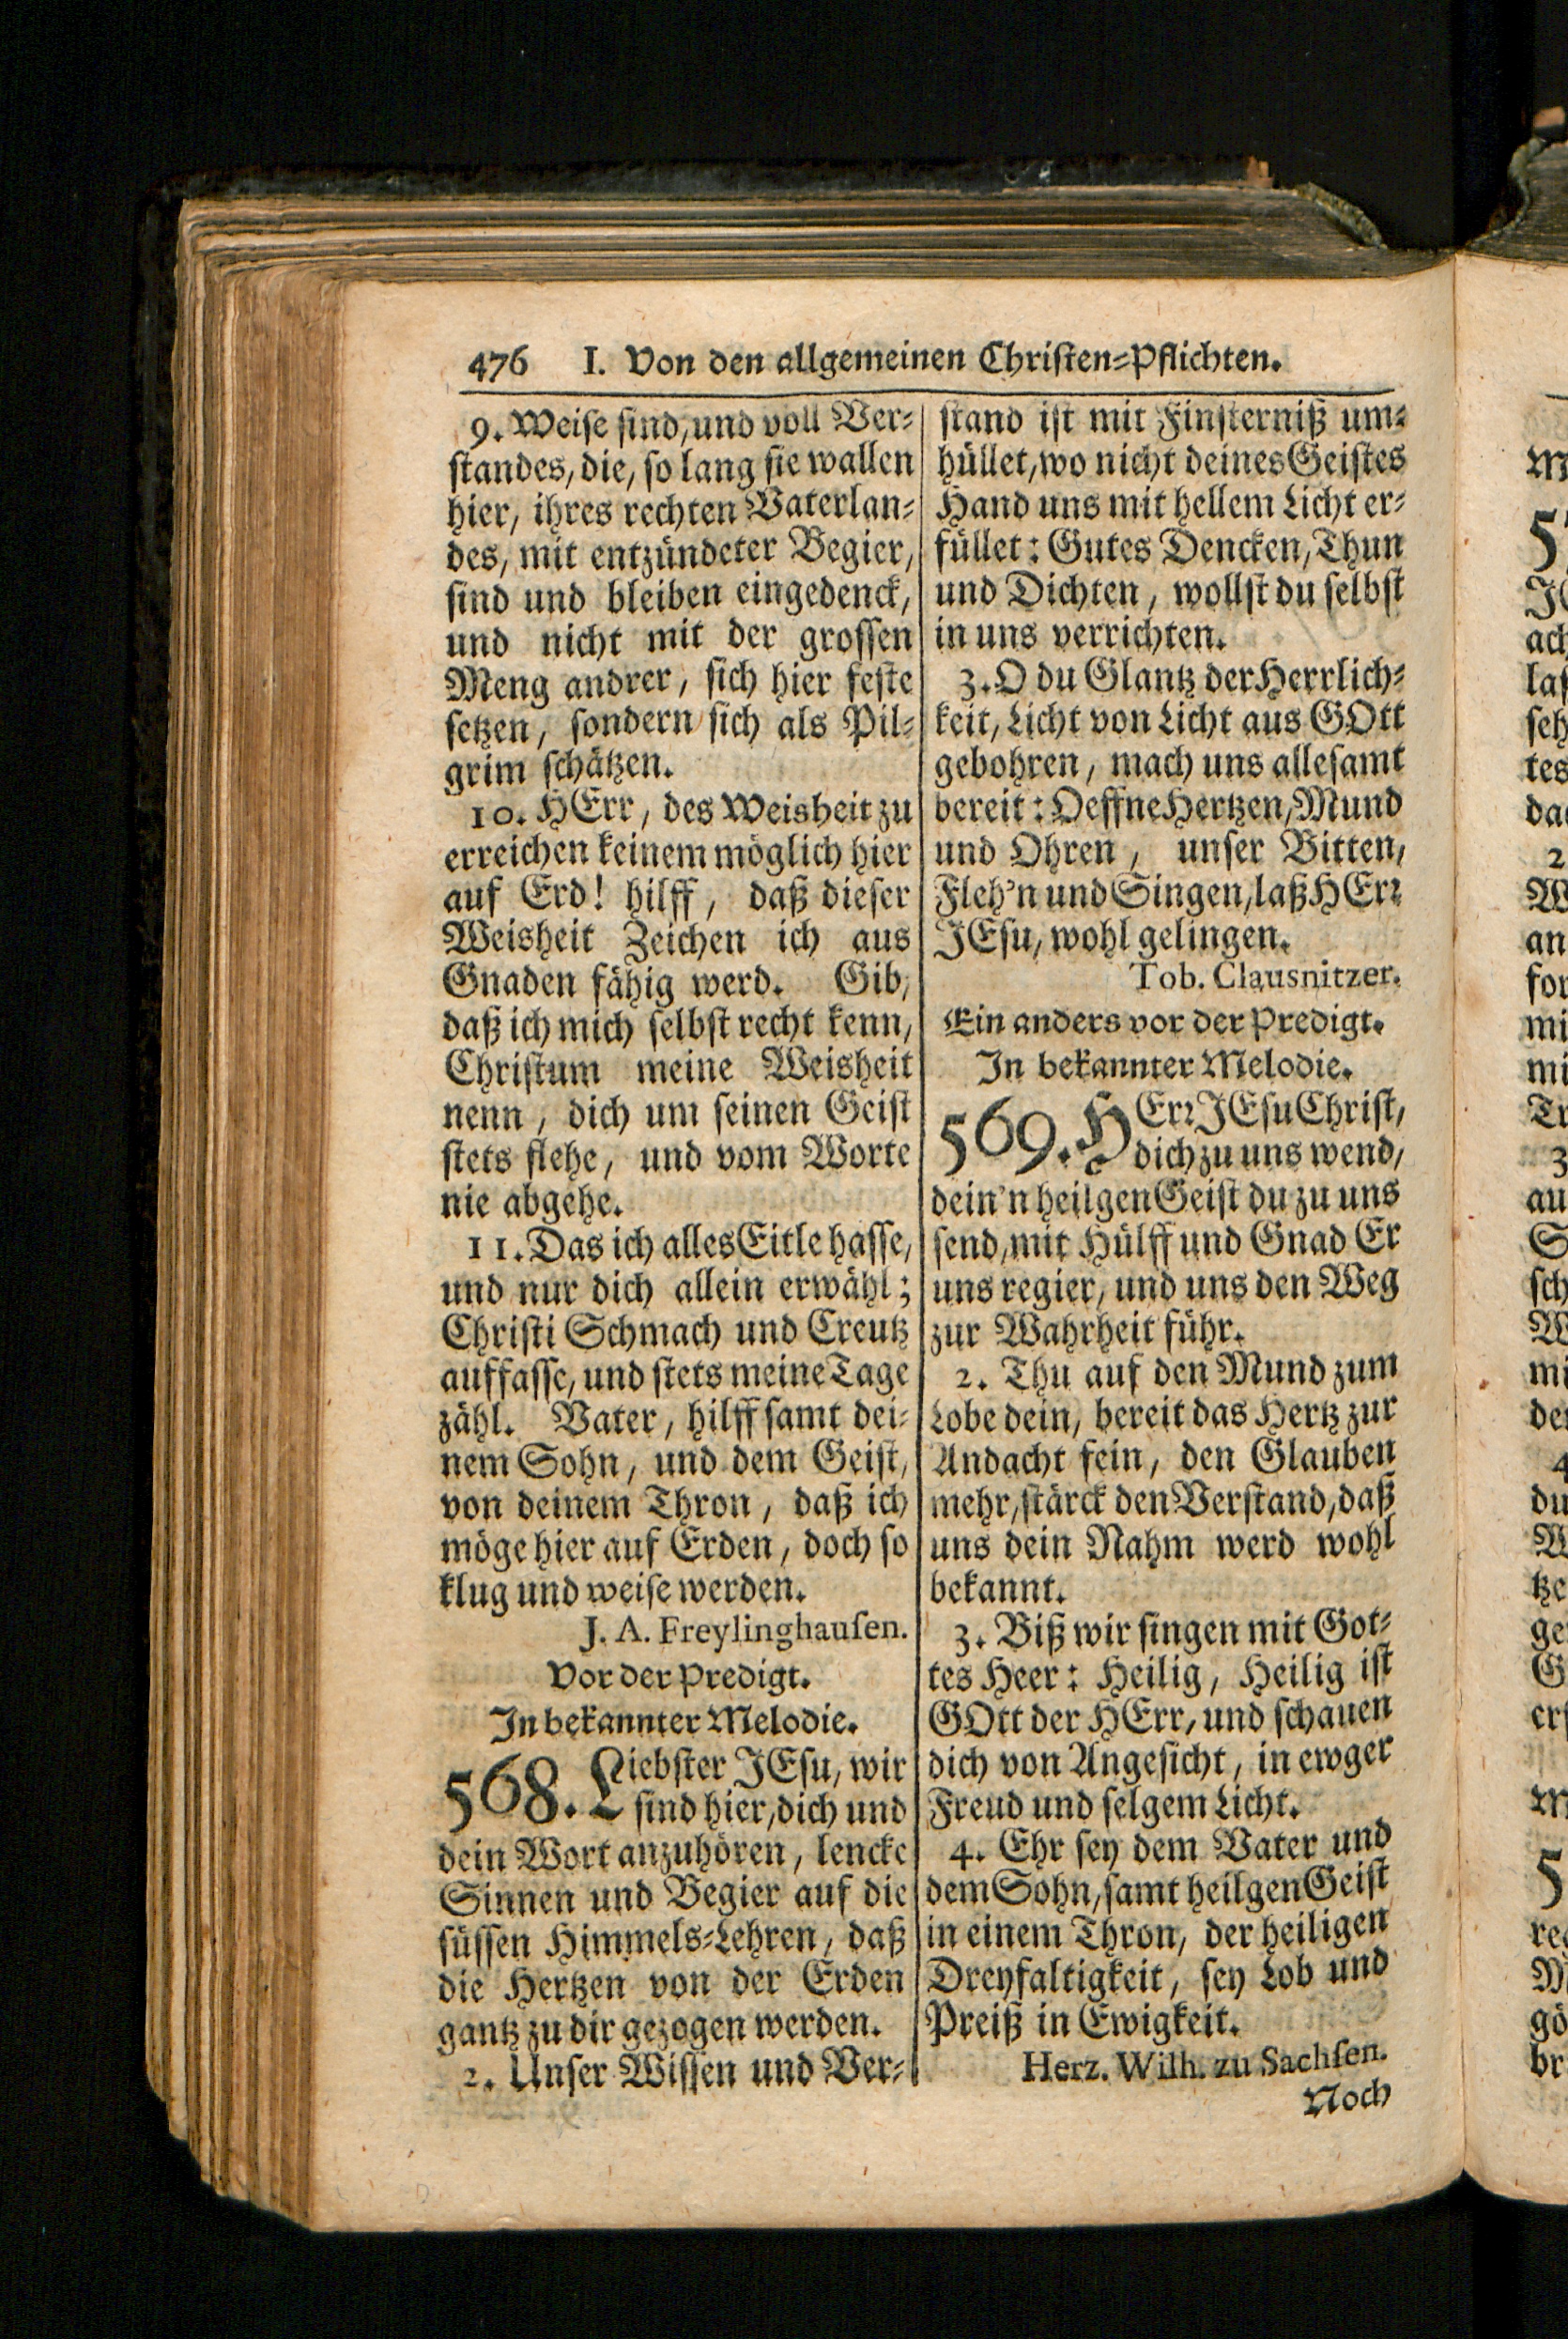 476 I. Von den allgemeinen Christen-Pflichten.
9. Weise sind, und voll Ver-
standes, die, so lang sie wallen
hier, ihres rechten Vaterlan-
des, mit entzündeter Begier,
sind und bleiben eingedenck,
und nicht mit der grossen
Meng andrer, sich hier feste
setzen, sondern sich als Pil-
grim schätzen.
10. HErr, des Weisheit zu
erreichen keinem möglich hier
auf Erd! hilff, daß dieser
Weisheit Zeichen ich aus
Gnaden fähig werd. Gib,
daß ich mich selbst recht kenn,
Christum meine Weisheit
nenn, dich um seinen Geist
stets flehe, und vom Worte
nie abgehe.
11. Das ich alles Eitle hasse,
und nur dich allein erwähl;
Christi Schmach und Creutz
auffasse, und stets meine Tage
zähl. Vater, hilff samt dei-
nem Sohn, und dem Geist,
von deinem Thron, daß ich
möge hier auf Erden, doch so
klug und weise werden.
J. A. Freylinghausen.
Vor der Predigt.
In bekannter Melodie.
568. Liebster JEsu, wir
sind hier, dich und
dein Wort anzuhören, lencke
Sinnen und Begier auf die
süssen Himmels-Lehren, daß
die Hertzen von der Erden
gantz zu dir gezogen werden.
2. Unser Wissen und Ver-
stand ist mit Finsterniß um-
hüllet, wo nicht deines Geistes
Hand uns mit hellem Licht er-
füllet: Gutes Dencken, Thun
und Dichten, wollst du selbst
in uns verrichten.
3. O du Glantz der Herrlich-
keit, Licht von Licht aus GOtt
gebohren, mach uns allesamt
bereit: Oeffne Hertzen, Mund
und Ohren, unser Bitten,
Fleh'n und Singen, laß HErr
JEsu, wohl gelingen.
Tob. Clausnitzer.
Ein anders vor der Predigt.
In bekannter Melodie.
569. HErr JEsu Christ,
dich zu uns wend,
dein'n heilgen Geist du zu uns
send, mit Hülff und Gnad Er
uns regier, und uns den Weg
zur Wahrheit führ.
2. Thu auf den Mund zum
Lobe dein, bereit das Hertz zur
Andacht fein, den Glauben
mehr, stärck den Verstand, daß
uns dein Nahm werd wohl
bekannt.
3. Biß wir singen mit Got-
tes Heer: Heilig, Heilig ist
GOtt der HErr, und schauen
dich von Angesicht, in ewger
Freud und selgem Licht.
4. Ehr sey dem Vater und
dem Sohn, samt heilgen Geist
in einem Thron, der heiligen
Dreyfaltigkeit, sey Lob und
Preiß in Ewigkeit.
Herz. Wilh. zu Sachsen.
Noch